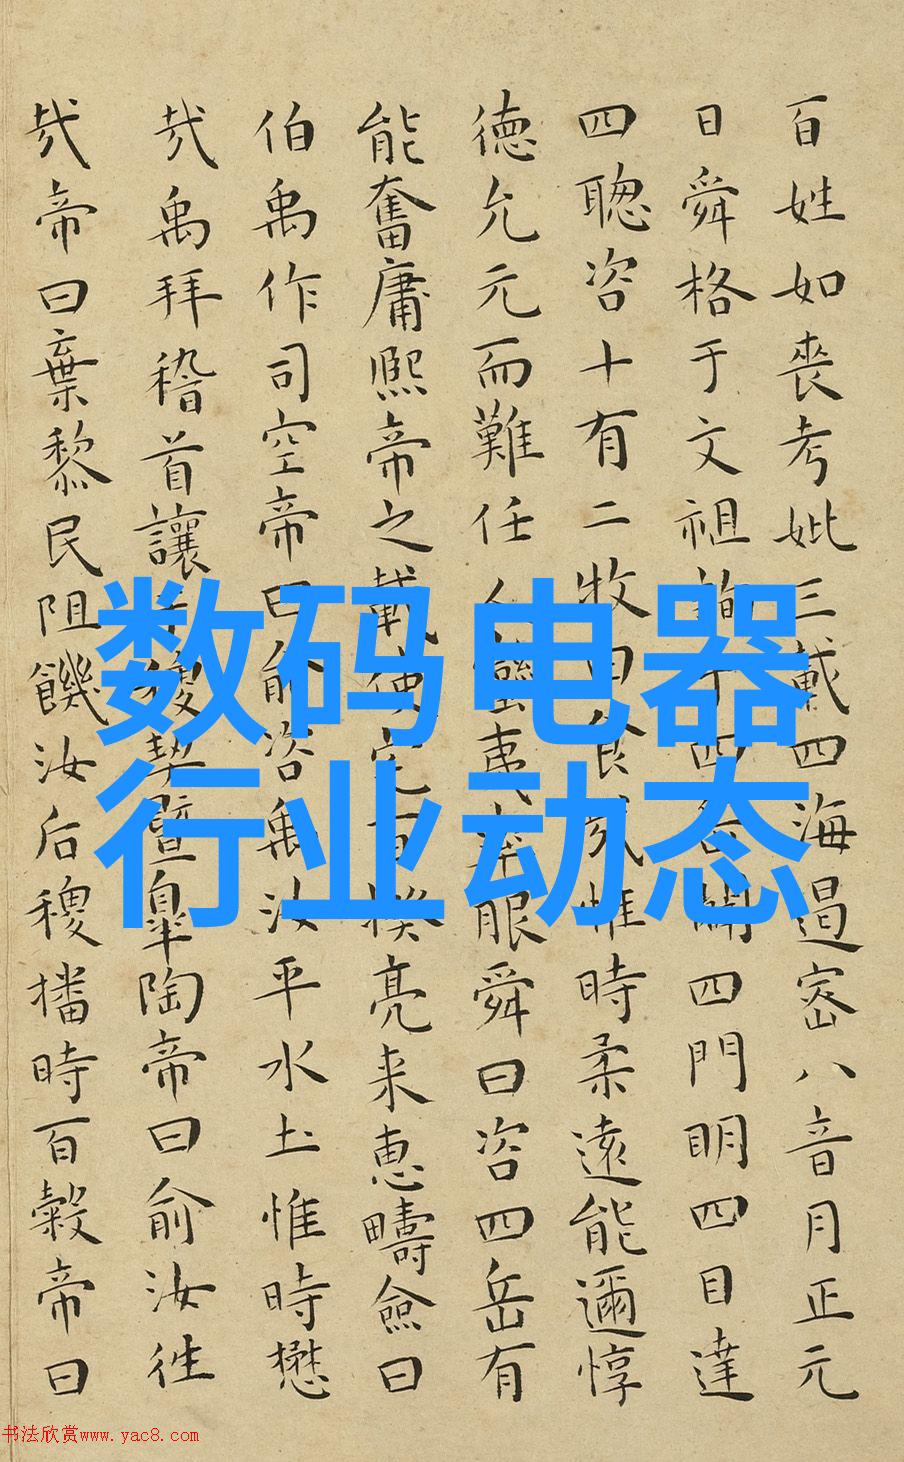 百姓如喪考妣三載四海遏密八音月正元
日舜格于文祖詢于四岳闢四門明四目達
四聰咨十有二牧曰食哉惟時柔遠能邇惇
德允元而難任人蠻夷率服舜曰咨四岳有
能奮庸熙帝之載使宅百揆亮采惠疇僉曰
伯禹作司空帝曰俞咨禹汝平水土惟時懋
哉禹拜稽首讓于稷契暨皐陶帝曰俞汝往
哉帝曰棄黎民阻饑汝后稷播時百穀帝曰
数码电器
行业动态
书法欣赏www.yac8.com